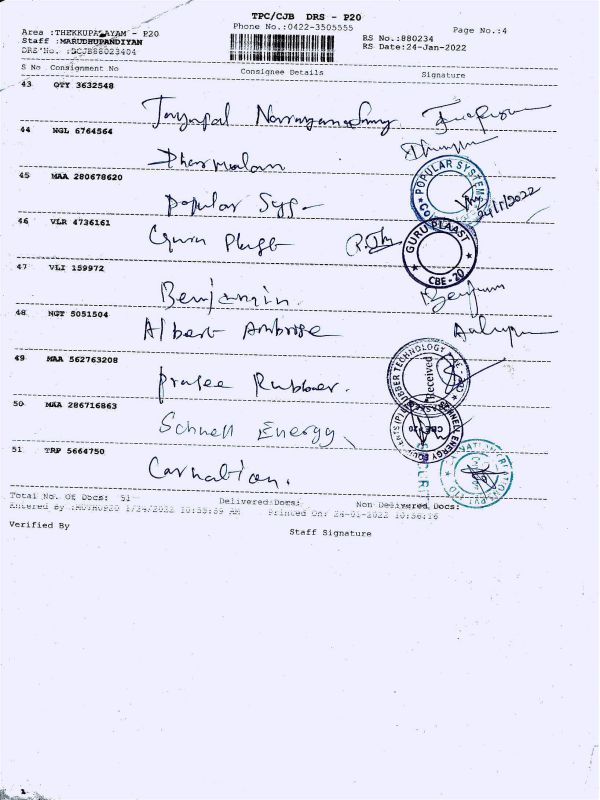 TPC/CJB DRS - P20
Phone No.:0422-3505555
Page No.:4
Area :THEKKUPALAYAM - P20
Staff :MARUDHUPANDIYAN
RS No.:880234
RS Date:24-Jan-2022
DRS No. :DCJB88023404
S No Consignment No Consignee Details Signature
43 QTY 3632548
44 NGL 6764564
Dharmalam
45 MAA 280678620
POPULAR SYSTEMS
24/1/2022
Popular Sys
46 VLR 4736161
Guru Plast
GURU PLAAST
CBE-20
47 VLI 159972
Benjamin.
48 NGT 5051504
Albert Ambrose
49 MAA 562763208
RUBBER TECHNOLOGY
Received
Prasee Rubber.
50 MAA 286716863
Schnell Energy
CBE-20
51 TRP 5664750
Carnation.
Total No. Of Docs: 51 Delivered Docs: Non Delivered Docs:
Entered By :MUTHUP20 1/24/2022 10:55:59 AM Printed On: 24-01-2022 10:56:16
Verified By
Staff Signature